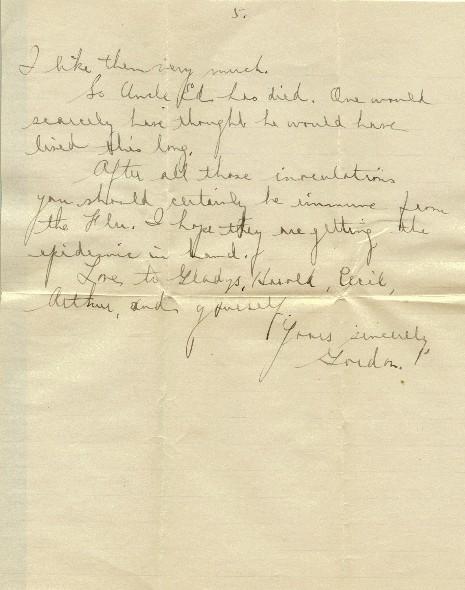 5.
I like them very much.
So Uncle Ed has died. One would
scarcely have thought he would have
lived this long.
After all those innoculations
you should certainly be immune from
the Flu. I hope they are getting the
epidemic in hand.
Love to Gladys, Harold, Cecil,
Arthur, and yourself
"Yours sincerely
Gordon."